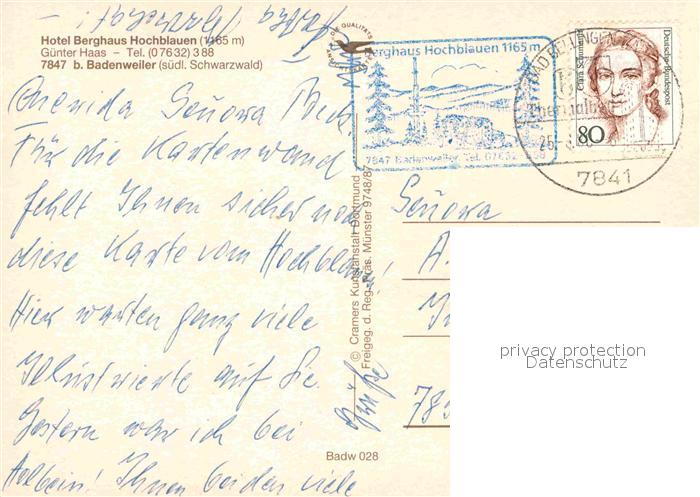 Hotel Berghaus Hochblauen (1165 m)
Günter Haas – Tel. (0 76 32) 3 88
7847 b. Badenweiler (südl. Schwarzwald)
Querida Señora Beck
Für die Kartenwand
fehlt Ihnen sicher noch
diese Karte vom Hochblauen!
Hier warten ganz viele
Illustrierte auf Sie.
Gestern war ich bei
Holbein! Ihnen beiden viele
Grüße
DIE QUALITÄTS
Berghaus Hochblauen 1165 m
7847 Badenweiler, Tel. 07632
Clara Schumann
Deutsche Bundespost
80
BAD BELLINGEN
7841
© Cramers Kunstanstalt Dortmund
Freigeg. d. Reg. Präs. Münster 9748/87
Badw 028
Señora
A.
785
privacy protection
Datenschutz